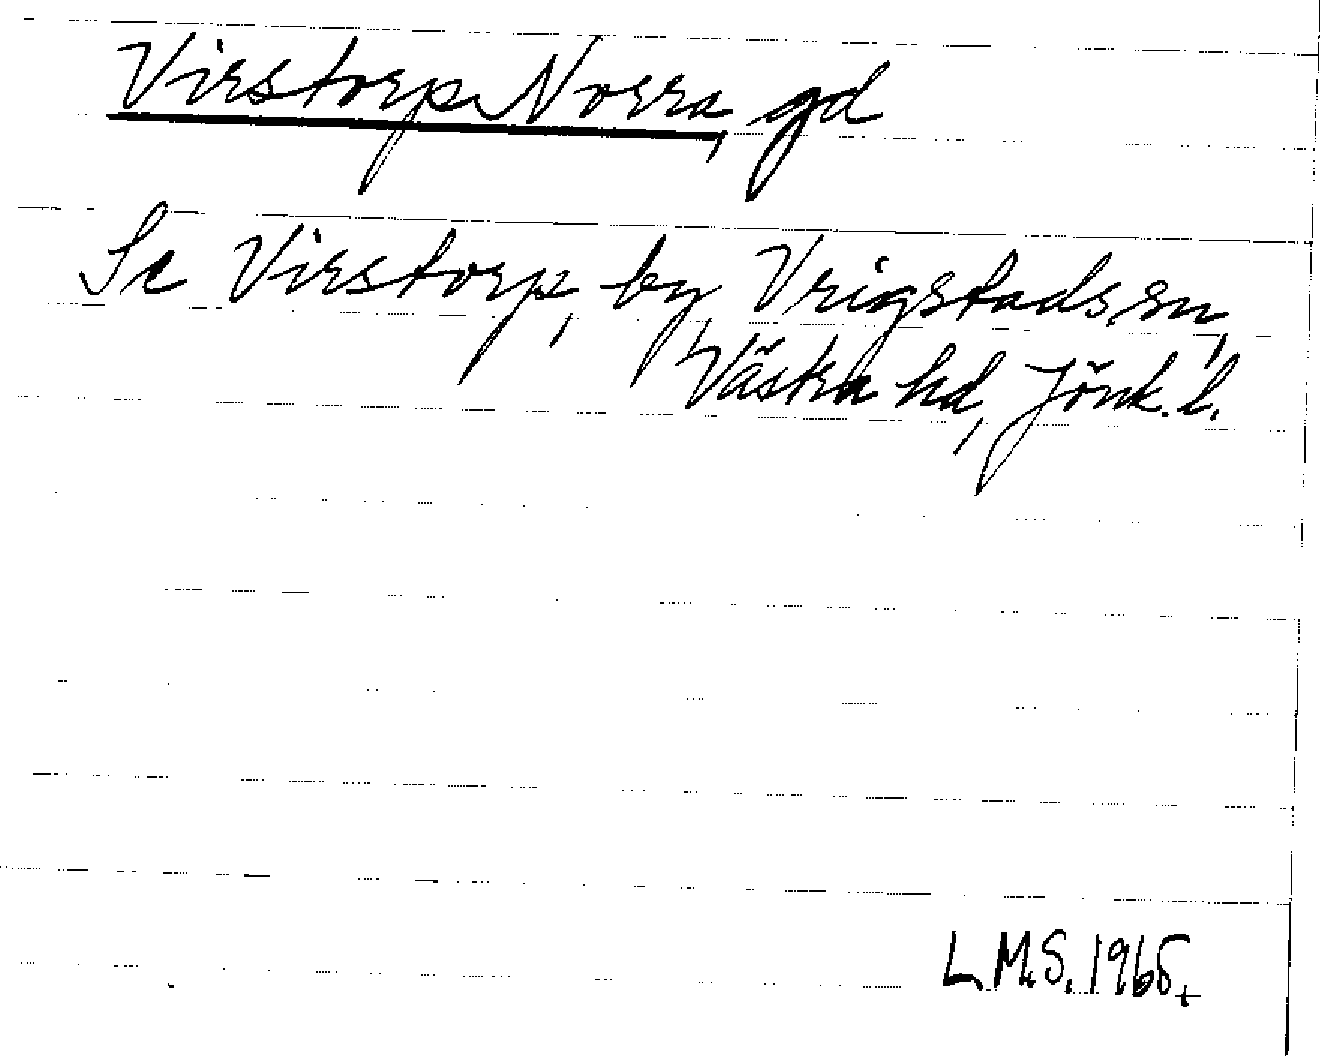 Virstorp Norra, gd
Se Virstorp, by, Vrigstads sn,
Västra hd, Jönk. l.
L.M.S. 1965